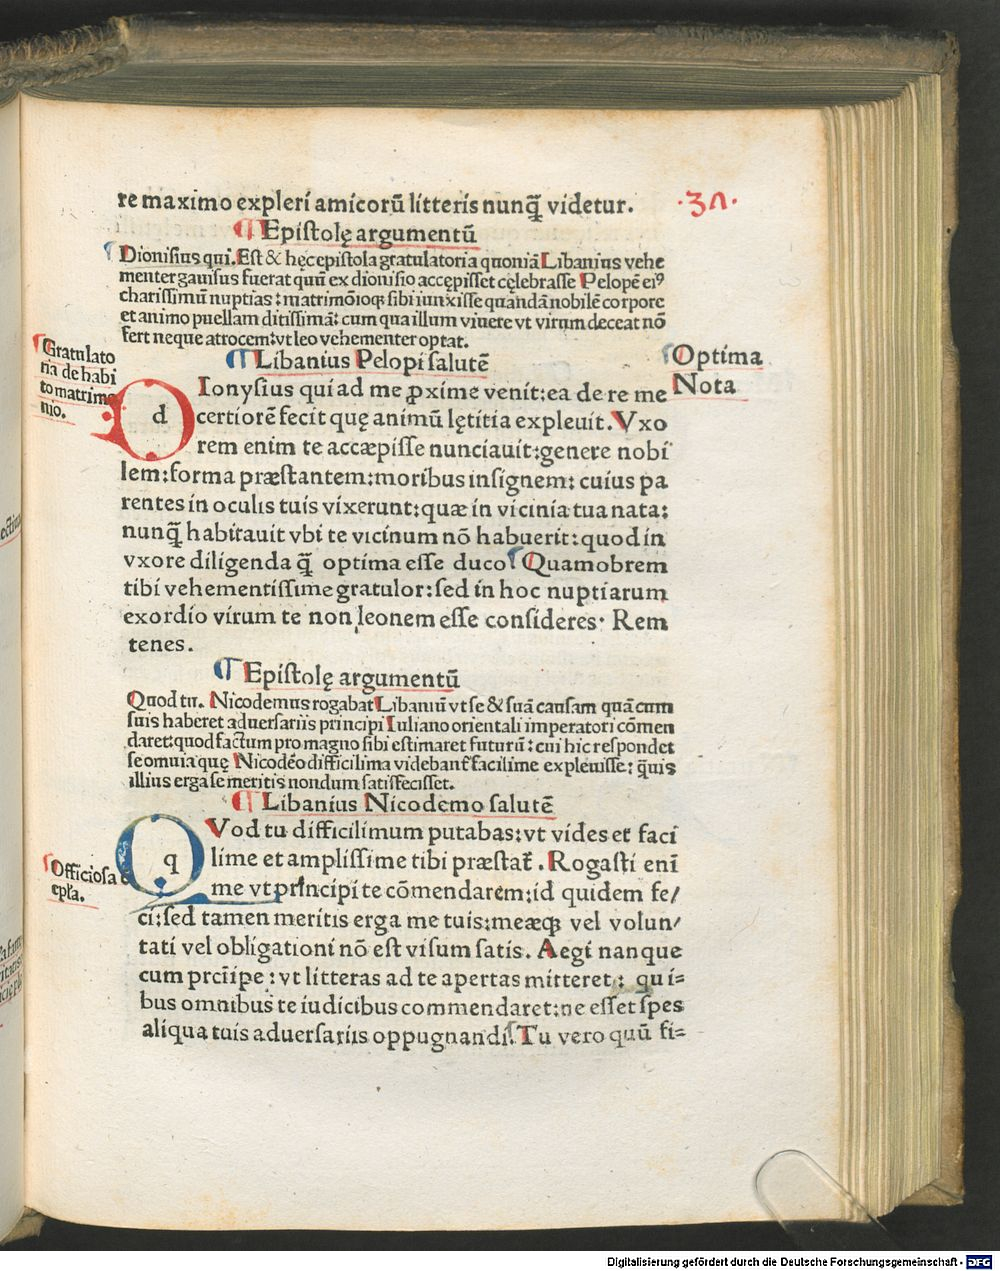 re maximo expleri amicorū litteris nunq̄ videtur.
·37·
¶ Epistolę argumentū
¶ Dionisius qui. Est & hęc epistola gratulatoria quoniā Libanius vehe
menter gauisus fuerat quū ex dionisio accępisset cęlebrasse Pelopē eiꝰ
charissimū nuptias: matrimōioqꝫ sibi iunxisse quandā nobilē corpore
et animo puellam ditissimā: cum qua illum viuere vt virum deceat nō
fert neque atrocem: vt leo vehementer optat.
¶ Libanius Pelopi salutē
Gratulato
ria de habi
to matrimo
nio.
Optima
Nota
dIonysius qui ad me ꝓxime venit: ea de re me
certiorē fecit quę animū lętitia expleuit. Vxo
rem enim te accæpisse nunciauit: genere nobi
lem: forma præstantem: moribus insignem: cuius pa
rentes in oculis tuis vixerunt: quæ in vicinia tua nata:
nunq̄ habitauit vbi te vicinum nō habuerit: quod in
vxore diligenda q̄ optima esse duco ¶ Quamobrem
tibi vehementissime gratulor: sed in hoc nuptiarum
exordio virum te non leonem esse consideres. Rem
tenes.
¶ Epistolę argumentū
Quod tu. Nicodemus rogabat Libaniū vt se & suā causam quā cum
suis haberet aduersariis principi Iuliano orientali imperatori cōmen
daret: quod factum pro magno sibi estimaret futurū: cui hic respondet
se omnia quę Nicodēo difficilima videbant᷑ facilime expleuisse: q̄uis
illius erga se meritis nondum satisfecisset.
¶ Libanius Nicodemo salutē
Officiosa
epła.
qVod tu difficilimum putabas: vt vides et faci
lime et amplissime tibi præstat᷑. Rogasti eni̅
me vt principi te cōmendarem: id quidem fe/
ci: sed tamen meritis erga me tuis: meæqꝫ vel volun/
tati vel obligationi nō est visum satis. Aegi nanque
cum prcīipe: vt litteras ad te apertas mitteret: qui=
bus omnibus te iudicibus commendaret: ne esset spes
aliqua tuis aduersariis oppugnandi. ¶ Tu vero quū si=
Digitalisierung gefördert durch die Deutsche Forschungsgemeinschaft - DFG